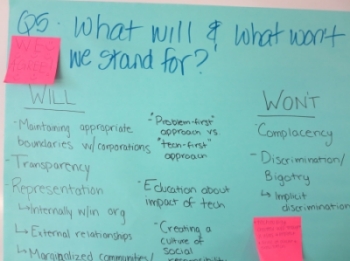 Q5. What will & what won't
we stand for?
WILL
- Maintaining appropriate
boundaries w/corporations
- Transparency
- Representation
↳ Internally w/in org
↳ External relationships
↳ Marginalized communities/
- "Problem-first"
approach vs.
"tech-first"
approach
- Education about
impact of tech
- Creating a
culture of
social
responsibility
WON'T
- Complacency
- Discrimination/
Bigotry
↳ Implicit
discrimination